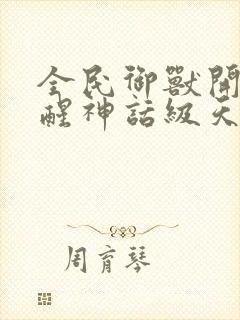 全民御獸開
醒神話級天
周育琴